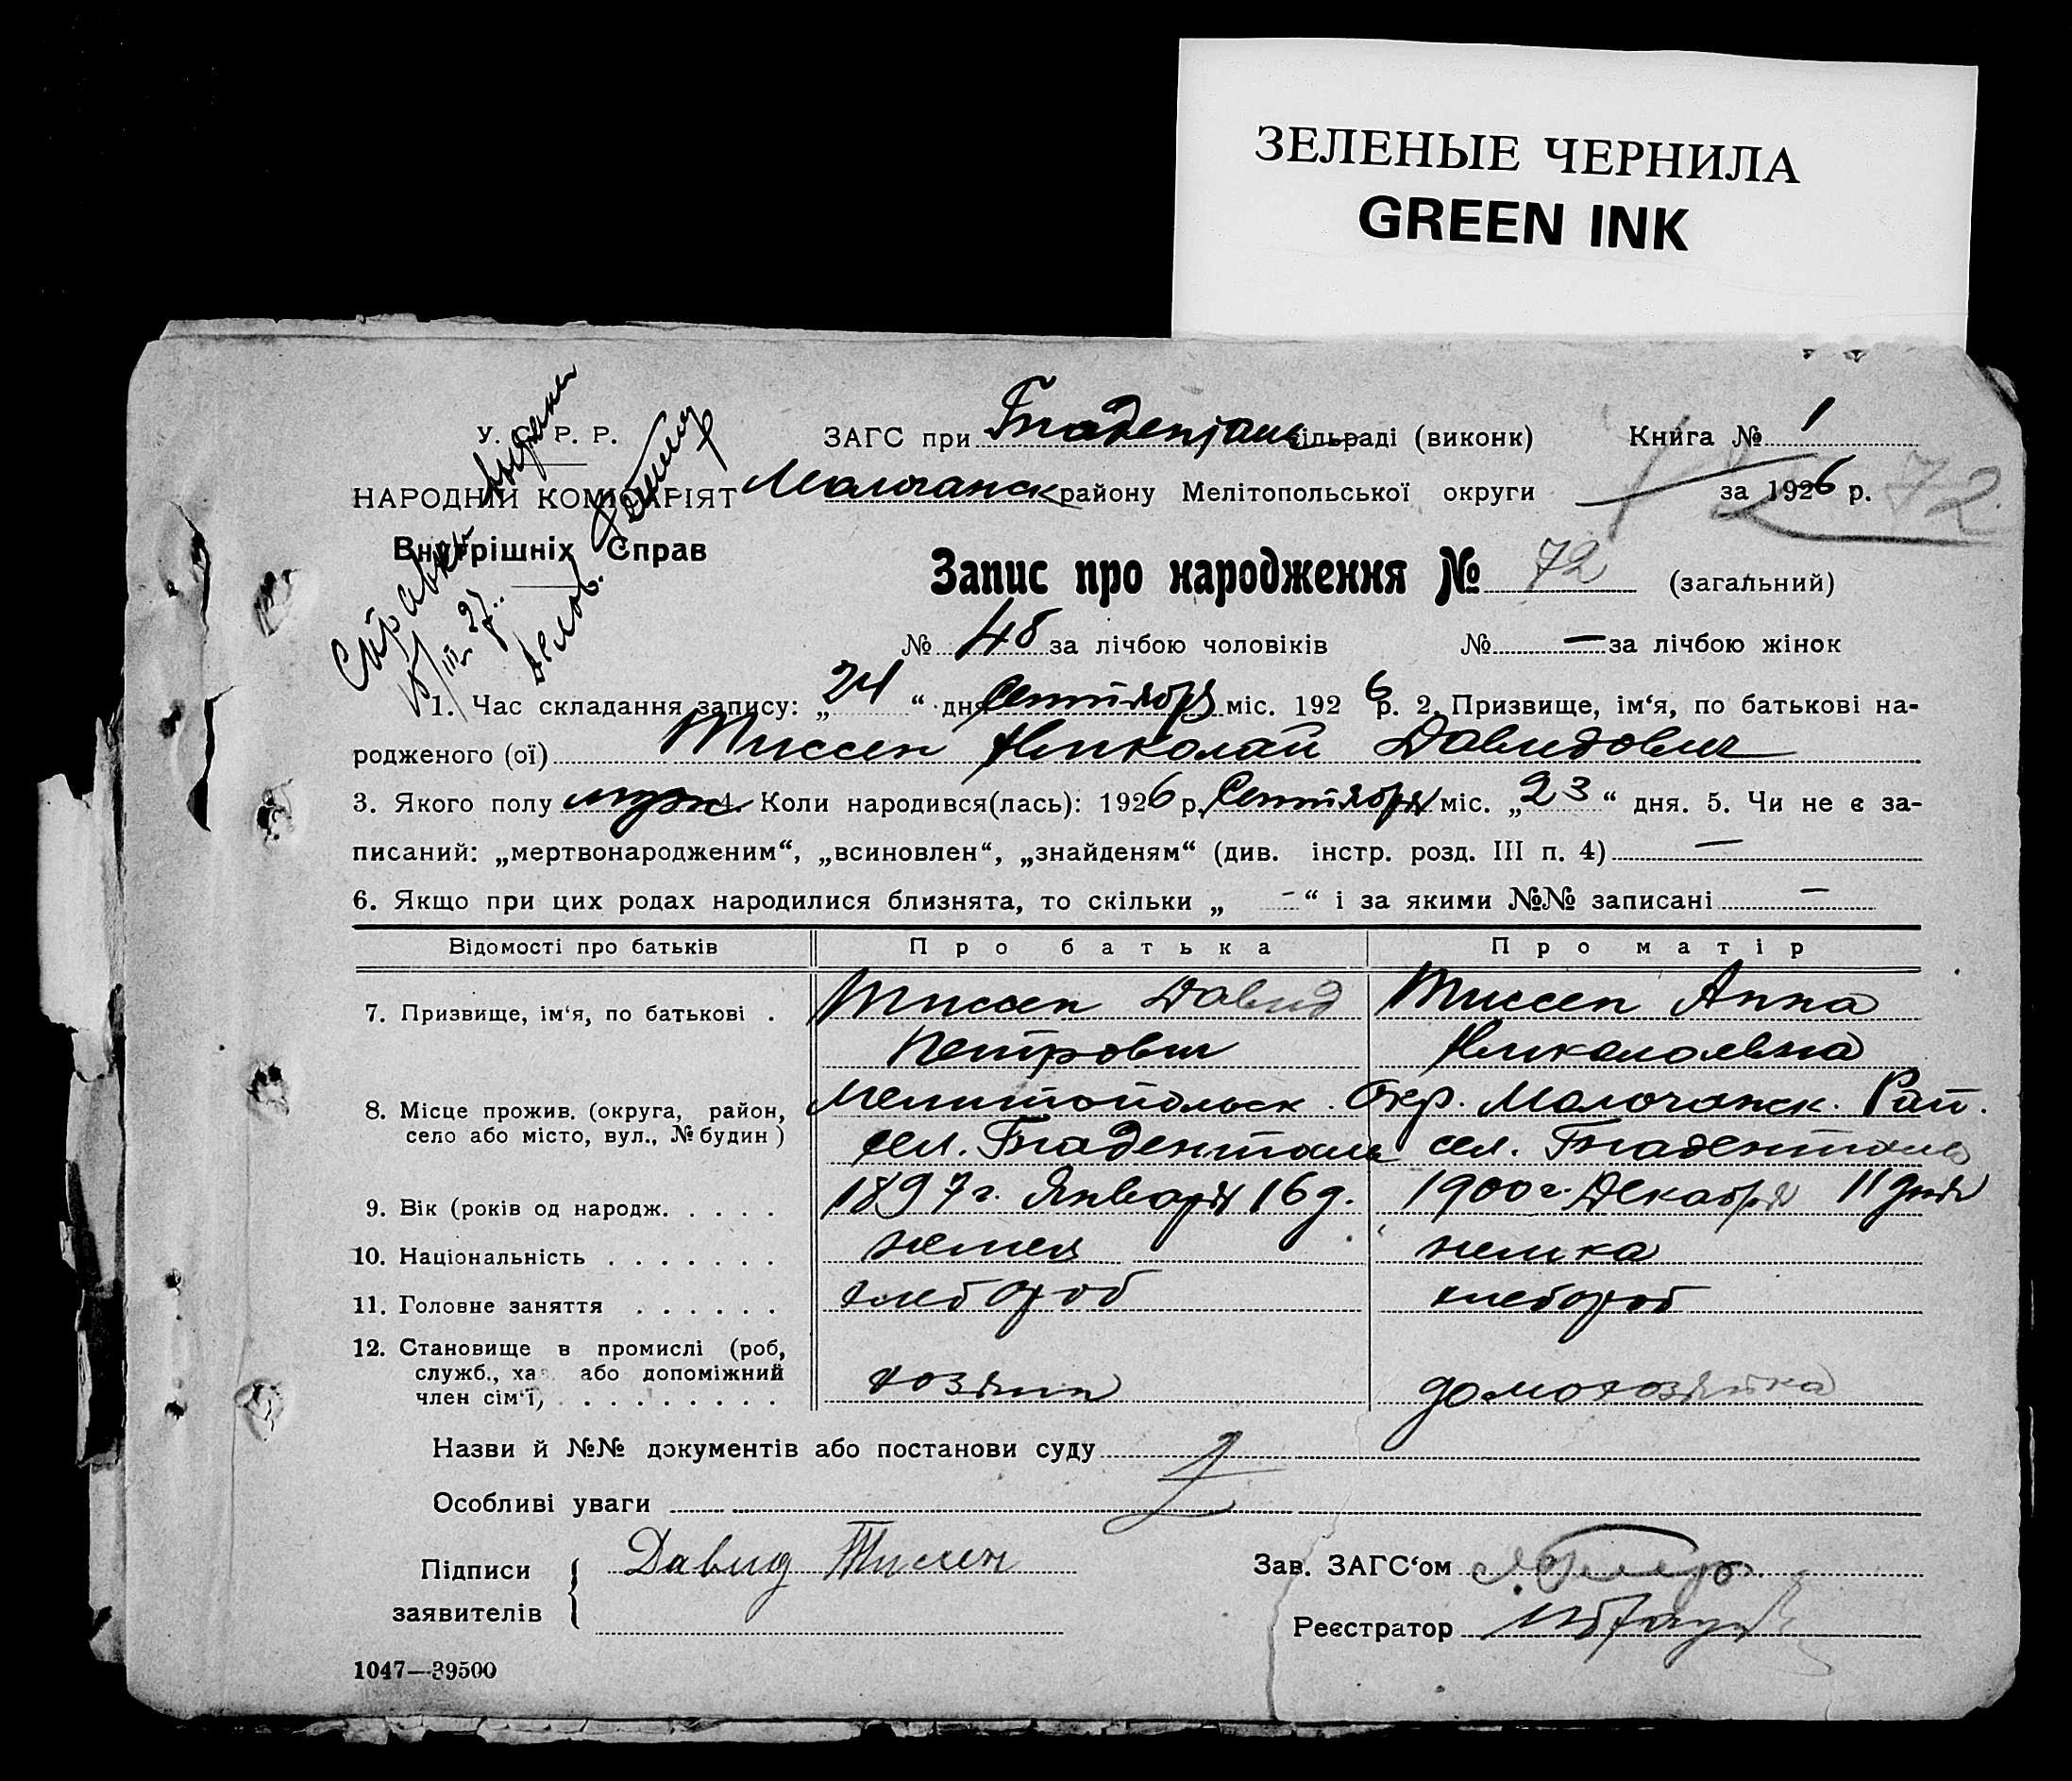 ЗЕЛЕНЫЕ ЧЕРНИЛА
GREEN INK
У. С. Р. Р.
НАРОДНІЙ КОМІСАРІЯТ
Внутрішніх Справ
Справка выдана
ЗАГС при Гнаденталь сільраді (виконк) Книга № 1
Молочанск району Мелітопольської округи за 1926 р. 72
Запис про народження № 72 (загальний)
№ 48 за лічбою чоловіків № — за лічбою жінок
1. Час складання запису: „24“ дня Сентября міс. 1926 р. 2. Призвище, ім‘я, по батькові на-
родженого (ої) Тиссен Николай Давидович
3. Якого полу муж 4. Коли народився(лась): 1926 р. Сентября міс. „23“ дня. 5. Чи не є за-
писаний: „мертвонародженим“, „всиновлен“, „знайденям“ (див. інстр. розд. III п. 4) —
6. Якщо при цих родах народилися близнята, то скільки „ - “ і за якими №№ записані —
Відомості про батьків Про батька Про матір
7. Призвище, ім‘я, по батькові . Тиссен Давид Тиссен Анна
Петрович Николаевна
8. Місце прожив. (округа, район, Мелитопольск. Окр. Молочанск. Рай.
село або місто, вул., № будин) сел. Гнаденталь сел. Гнаденталь
9. Вік (років од народж. . . . . 1897 г. Января 16 д. 1900 г. Декабря 11 дня
10. Національність . . . . . . . немец немка
11. Головне заняття . . . . . . хлебороб хлебороб
12. Становище в промислі (роб,
служб., ха або допоміжний
член сім‘ї) . . . . . . . . . хозяин домохозяйка
Назви й №№ документів або постанови суду
Особливі уваги
Підписи Давид Тиссен Зав. ЗАГС‘ом
заявителів Реєстратор
1047—39500